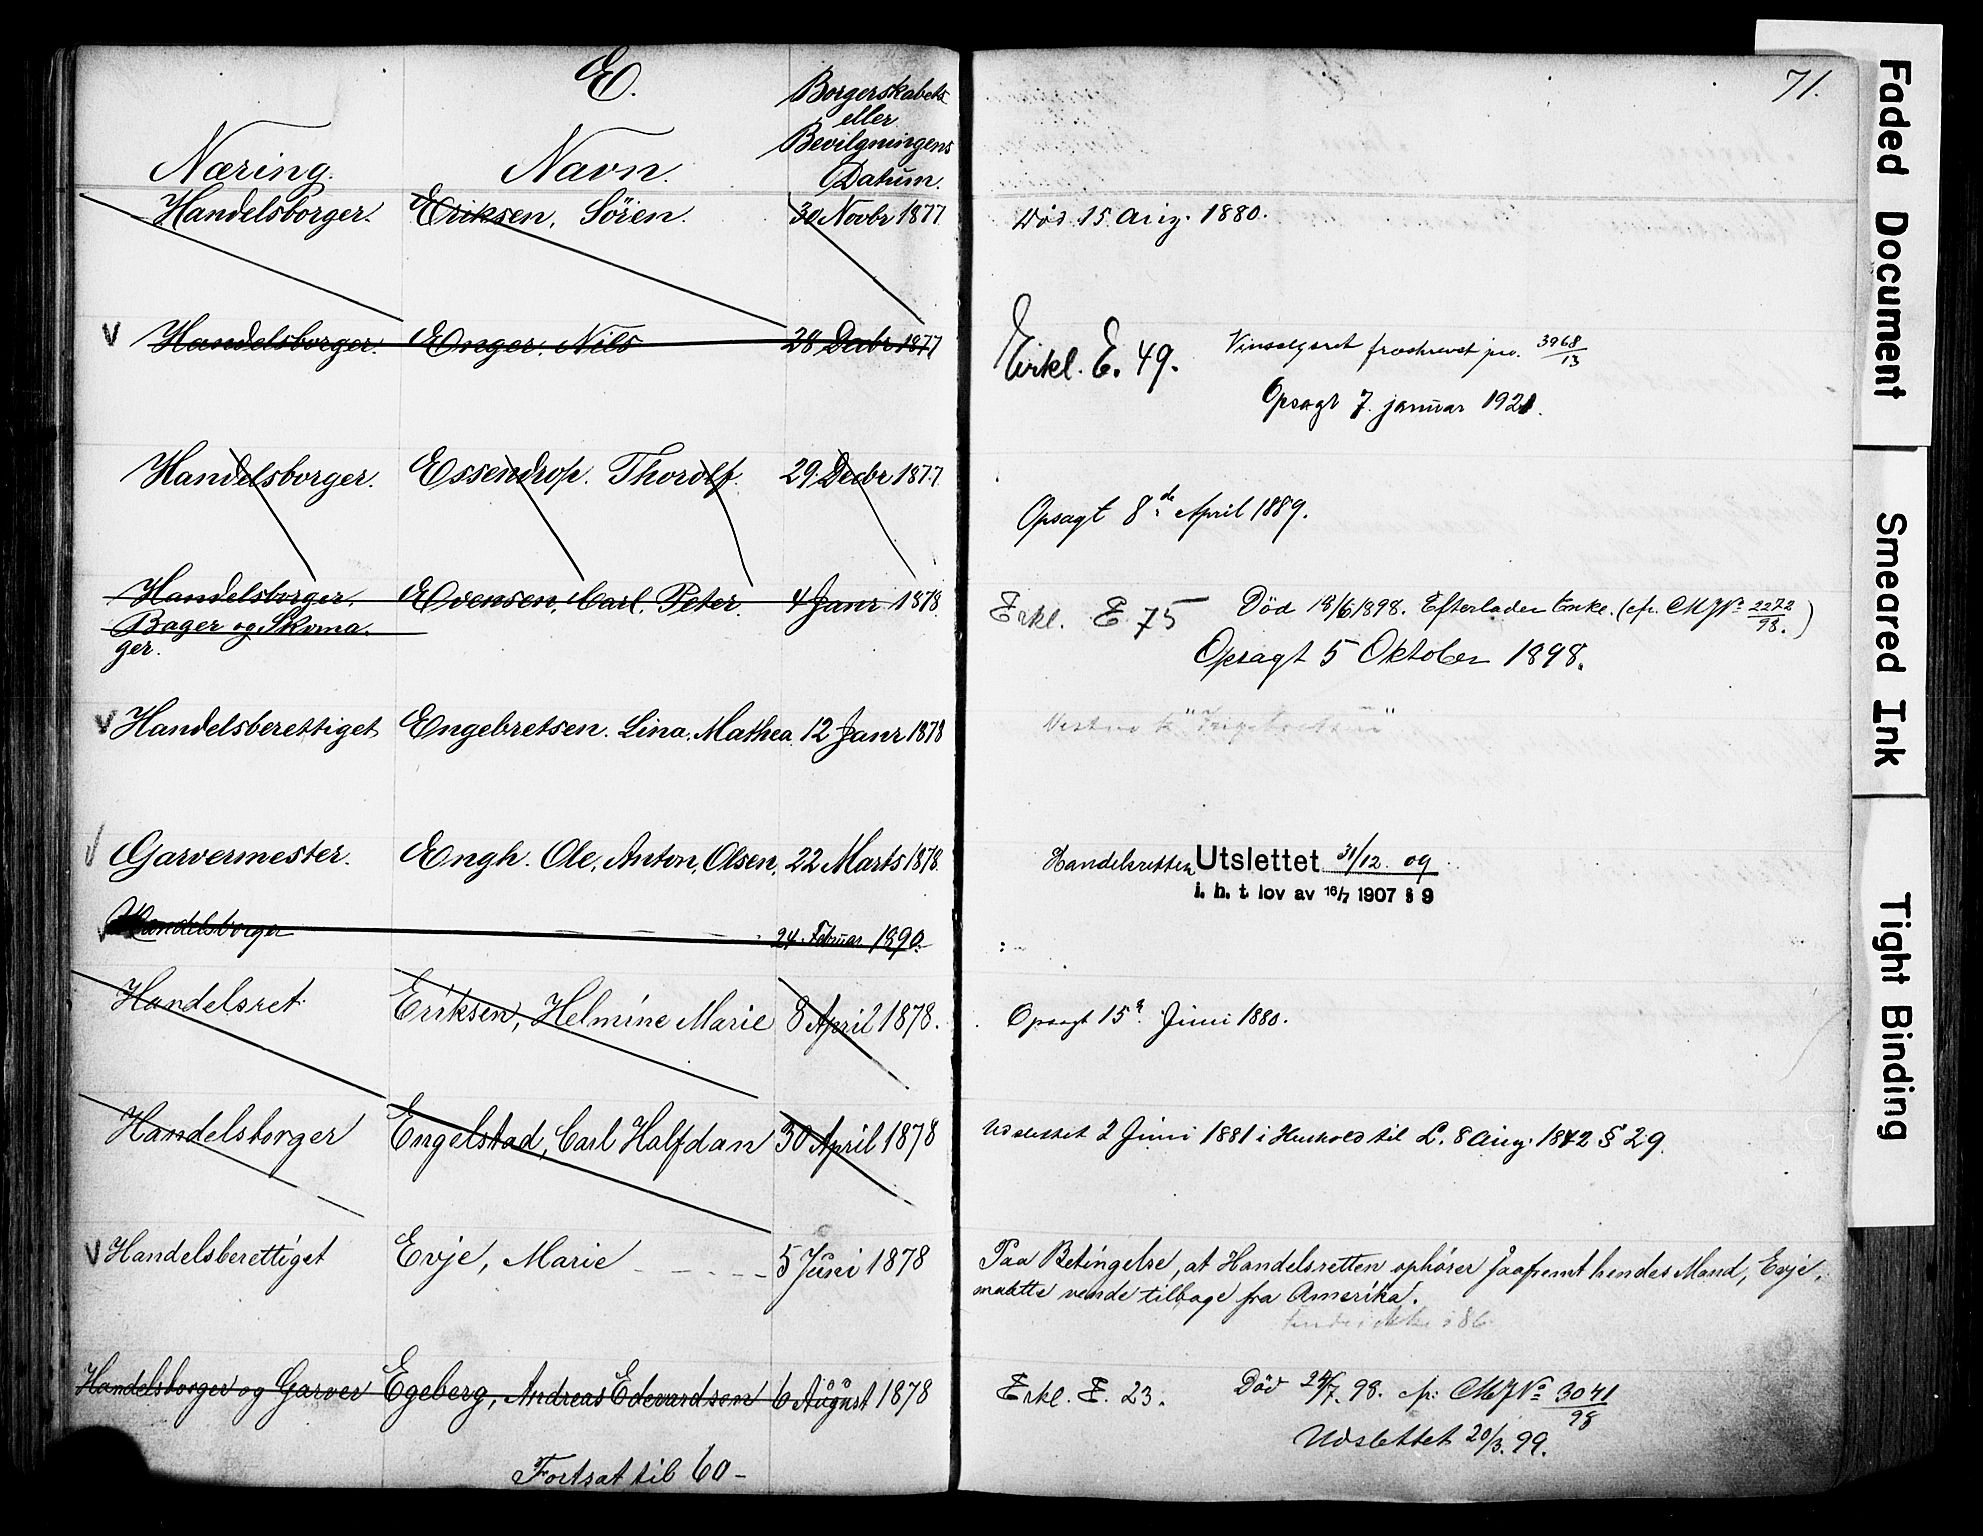 E.
71.
Næring.
Navn.
Borgerskabets
eller
Bevilgningens
Datum.
Handelsborger. Eriksen, Sören. 30 Novbr 1877 Död 15 Aug. 1880.
V Handelsborger. Enger. Nils 28 Decbr 1877 Erkl. E. 49. Vinsalgsret 3968/13
Opsagt 7. januar 1921.
Handelsborger. Essendrop. Thorolf. 29. Decbr 1877 Opsagt 8de April 1889.
Handelsborger. Evensen, Carl. Peter 4 Janr 1878 Erkl. E 75 Död 18/6 1898. Efterlader Enke. (cfr. MJNo 2272/98.)
Bager og Skoma
ger. Opsagt 5 Oktober 1898.
V Handelsberettiget Engebretsen. Lina. Mathea. 12 Janr 1878
V Garvermester. Engh. Ole, Anton, Olsen, 22 Marts 1878. Handelsretten Utslettet 31/12. 09
i. h. t. lov av 16/7 1907 § 9
V Handelsborger 24. Februar 1890.
Handelsret Eriksen, Helmine Marie 8 April 1878. Opsagt 15de Juni 1880.
Handelsborger Engelstad, Carl Halfdan 30 April 1878 Udslettet 2 Juni 1881 i Henhold til L. 8 Aug. 1842 § 29.
V Handelsberettiget Evje, Marie 5 Juni 1878 Paa Betingelse, at Handelsretten ophörer saafremt hendes Mand, Evje,
maatte vende tilbage fra Amerika.
Handelsborger og Garver Egeberg, Andreas Edevardsen 6 August 1878 Erkl. E. 23. Död 24/7. 98. cfr. MJNo 3041/98
Udslettet 20/3. 99.
Fortsat til 60 –
Faded Document
Smeared Ink
Tight Binding